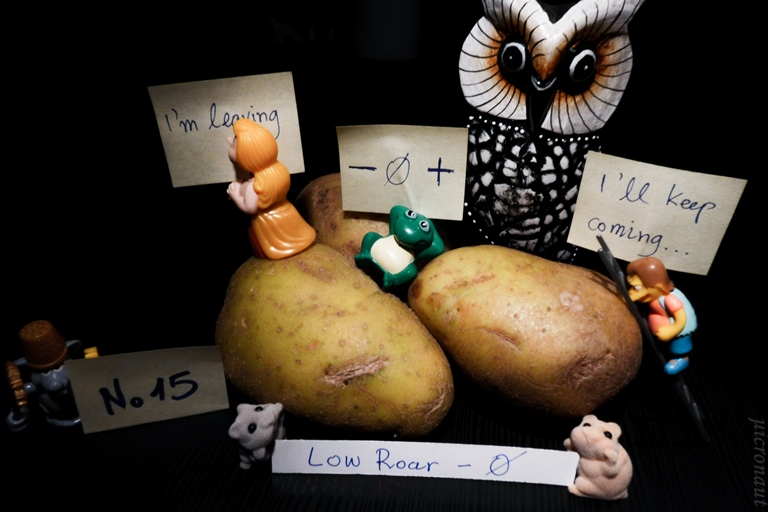 I'm leaving
- Ø +
I'll keep
coming...
No 15
Low Roar - Ø
µicronaut